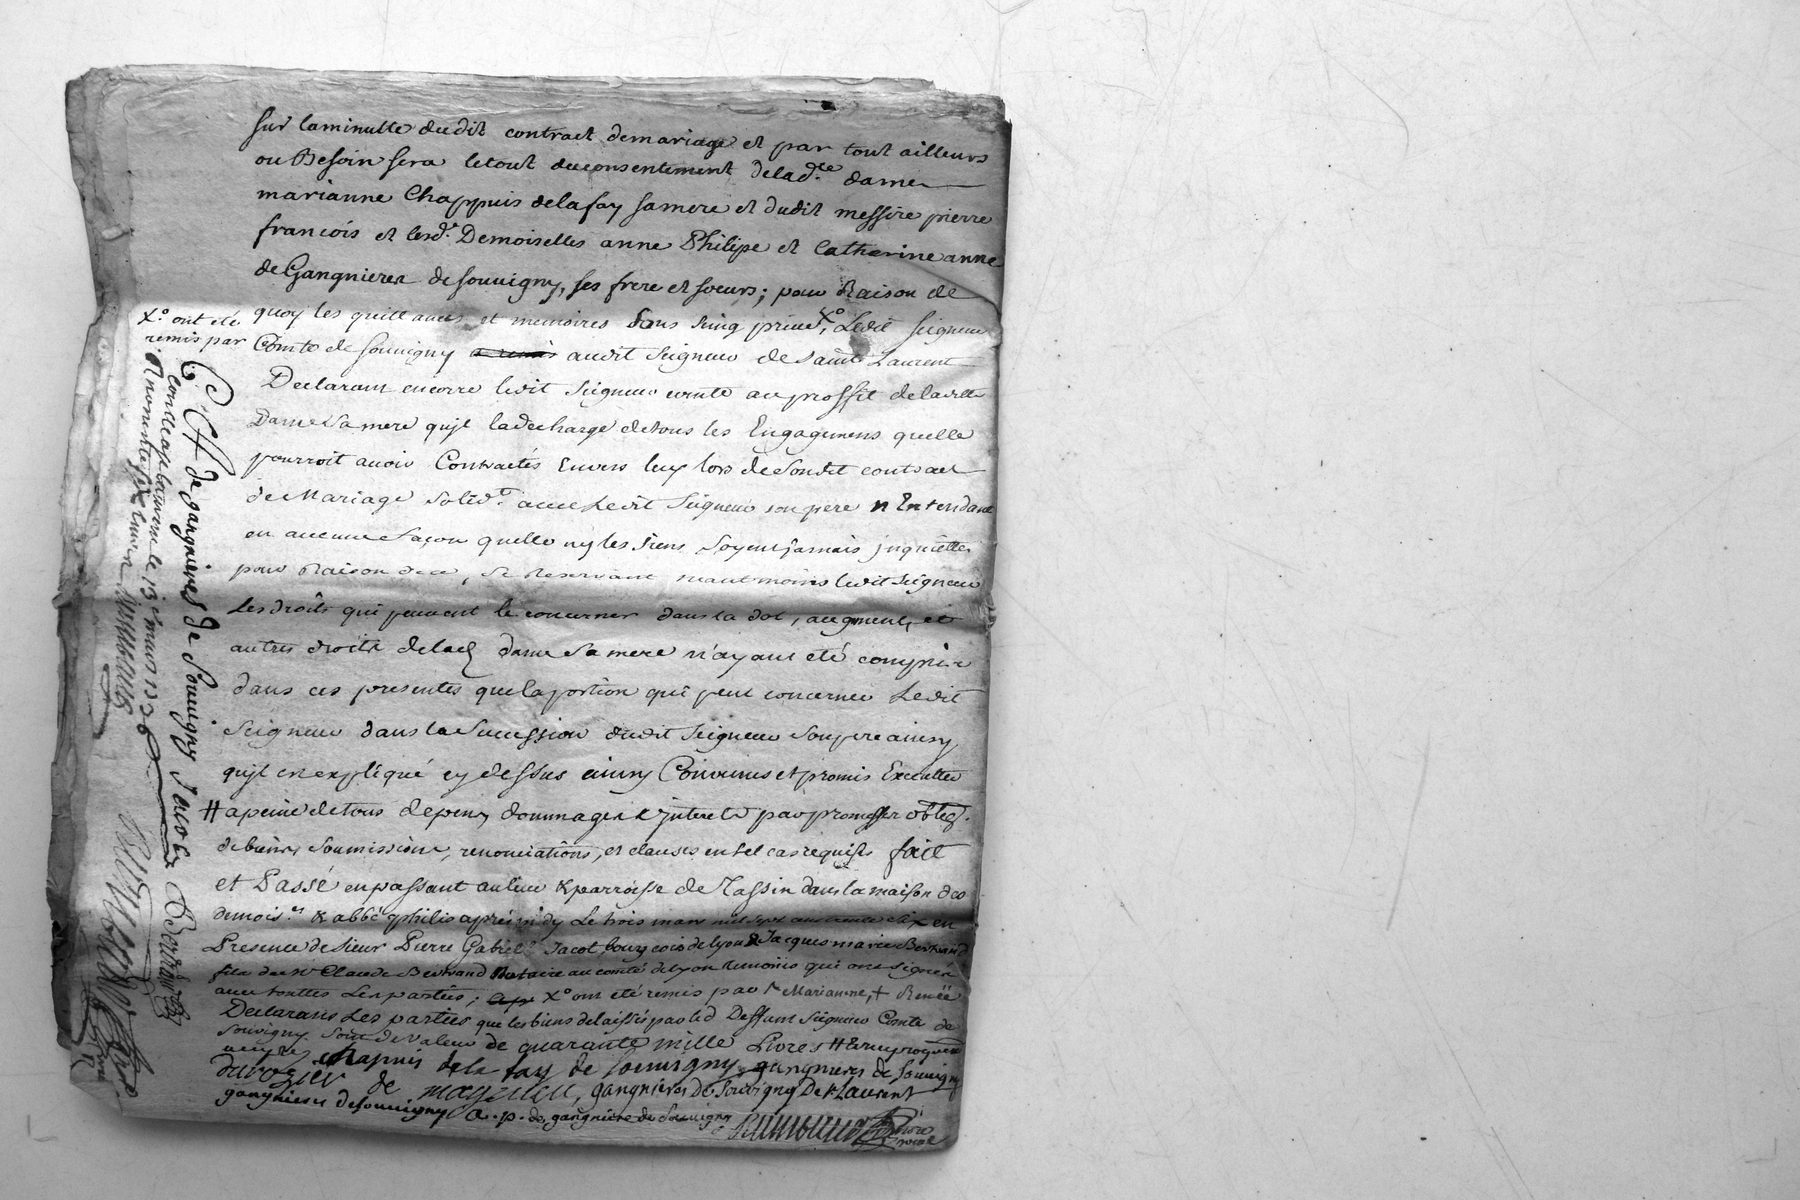 sur laminutte dudit contract demariage et par tout ailleurs
ou Besoin sera letout duconsentement delad.te dame
marianne Chappuis delafay samere et dudit messire pierre
francois et lesd.es Demoiselles anne Philipe et Catherine anne
de Gangnieres de souvigny, ses frere et soeurs; pour Raison de
quoy les quittances et memoires sous sing privé, X.o Ledit seigneur
X.o ont eté
remis par
Comte de souvigny audit seigneur de saint Laurent
Declarant encorre ledit seigneur comte auproffit deladitte
Dame sa mere qu'jl ladecharge detous les Engagemens quelle
pourroit avoir Contractés Envers luy lors desondit contract
de Mariage solid.t avec Ledit seigneur son pere n'Entendant
en aucune façon quelle ny les siens soyent jamais jnquiettés
pour Raison de ce, se Reservant neautmoins ledit seigneur
Les droits qui peuvent le concerner dans la dot, augment, et
autres droits delad dame sa mere n'ayant eté compris
dans ces presentes que la portion qui peut concerner Ledit
seigneur dans la succession dudit seigneur son pere ainsy
qu'jl est expliqué cy dessus ainsy Convenus et promis Executter
# apeine detous depens dommages & jnterets par promesses oblig.
debiens, soumissions, renonciations, et clauses en tel cas requises fait
et Passé enpassant aulieu & parroisse de Tassin dans la maison des
demois.es & abbé philis aprés midy Le trois mars mil sept cent trente six en
Presence de sieur Pierre Gabriel Jacob bourgeois de lyon & Jacques marie Bertrand
fils du s.r Claude Bertrand Notaire au comté de lyon temoins qui ont signé
avec touttes Les parties; X.o ont eté remis par + Marianne, + Renée
Declarans Les parties que les biens delaissés par led Deffunt seigneur Comte de
souvigny sont de valeur de quarante mille Livres #
chapuis de la fay de souvigny gangnieres de souvigny
durozier de magnieu, gangnieres De souvigny De s.t Laurent
gangnieres de souvigny a. p. de gangniere de souvigny
C G de gangnieres de Souvigny Jacob Bertrand
Controllé le 13 mars 1736